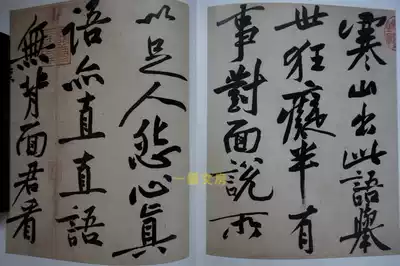 寒山出此語舉
世狂癡半有
事對面說所
以足人怨心真
語亦直直語
無背面君看
文房